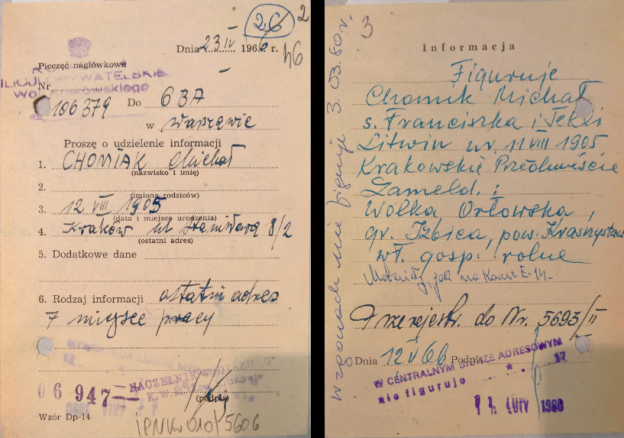 26
2
Dnia 23 IV 196
46
Pieczęć nagłówkowa
Nr
106379 Do
w Warszawie
Proszę o udzielenie informacji
1. CHOMIAK Michał
(nazwisko i imię)
2.
(imiona rodziców)
3. 12 VIII 1905
(data i miejsce urodzenia)
4. Kraków ul Stanisława 8/2
(ostatni adres)
5. Dodatkowe dane
6. Rodzaj informacji ostatni adres
miejsce pracy
06 947
NACZELNIK
(podpis)
Wzór Dp-14
IPN Kr 010/5606
3
Informacja
Figuruje
Chomik Michał
s. Franciszka i Tekli
Litwin ur. 11 VIII 1905
Krakowskie Przedmieście
Zameld.:
Wólka Orłowska,
gr. Izbica, pow. Krasnystaw
wł. gosp. rolne
Przerejestr. do Nr. 5693/II
Dnia 12 V 66 Podpis
W CENTRALNYM BIURZE ADRESOWYM
nie figuruje
LUTY
w zgonach nie figuruje 3.03.60 r.